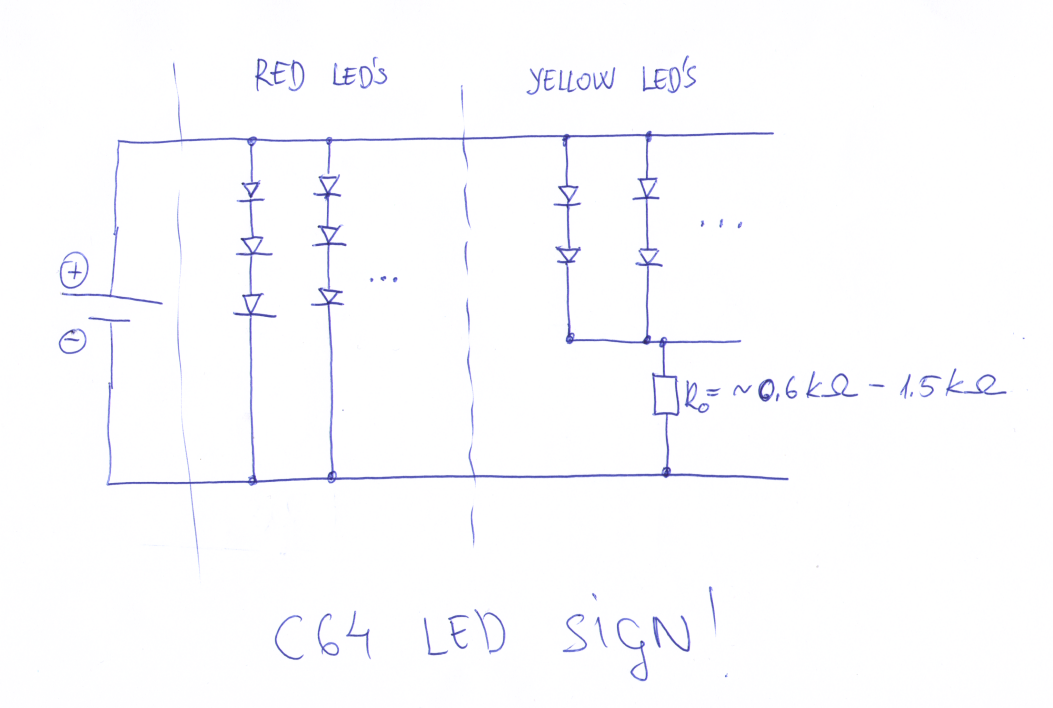 RED LED'S
YELLOW LED'S
...
...
+
-
R₀= ~0.6kΩ - 1.5kΩ
C64 LED SIGN!